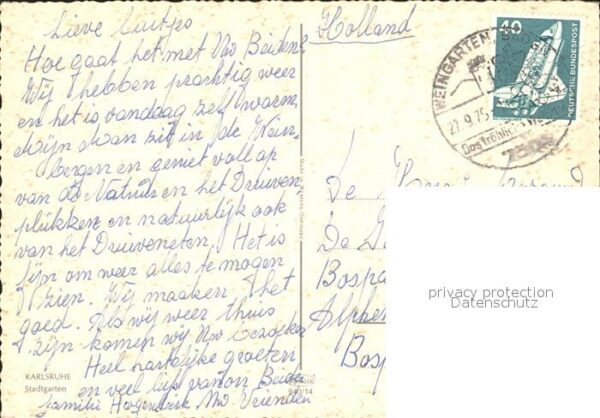 Lieve
Hoe gaat het met Uw Beiden?
Wij hebben prachtig weer
en het is vandaag zelf warm.
Mijn man zit in de Wein-
bergen en geniet vollop
van de Natuur en het Druiven
plukken en natuurlijk ook
van het Druiveneten. Het is
fijn om weer alles te mogen
zien. Wij maaken 't het
goed. Als wij weer thuis
zijn komen wij Uw
Heel hartelijke groeten
en veel liefs van ons Beiden
Familie Uw Vrienden
KARLSRUHE
Stadtgarten
Holland
WEINGARTEN
27.9.75
40
DEUTSCHE BUNDESPOST
De
De
Bospa
Alphen
Bosp
privacy protection
Datenschutz